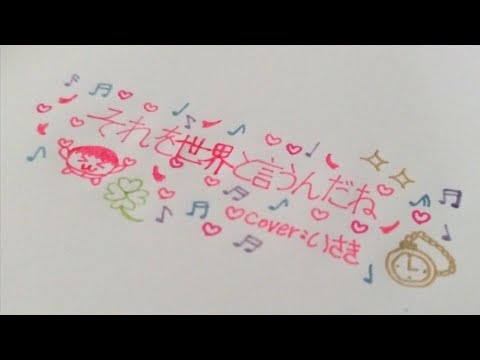 それを世界と言うんだね
cover:いさき